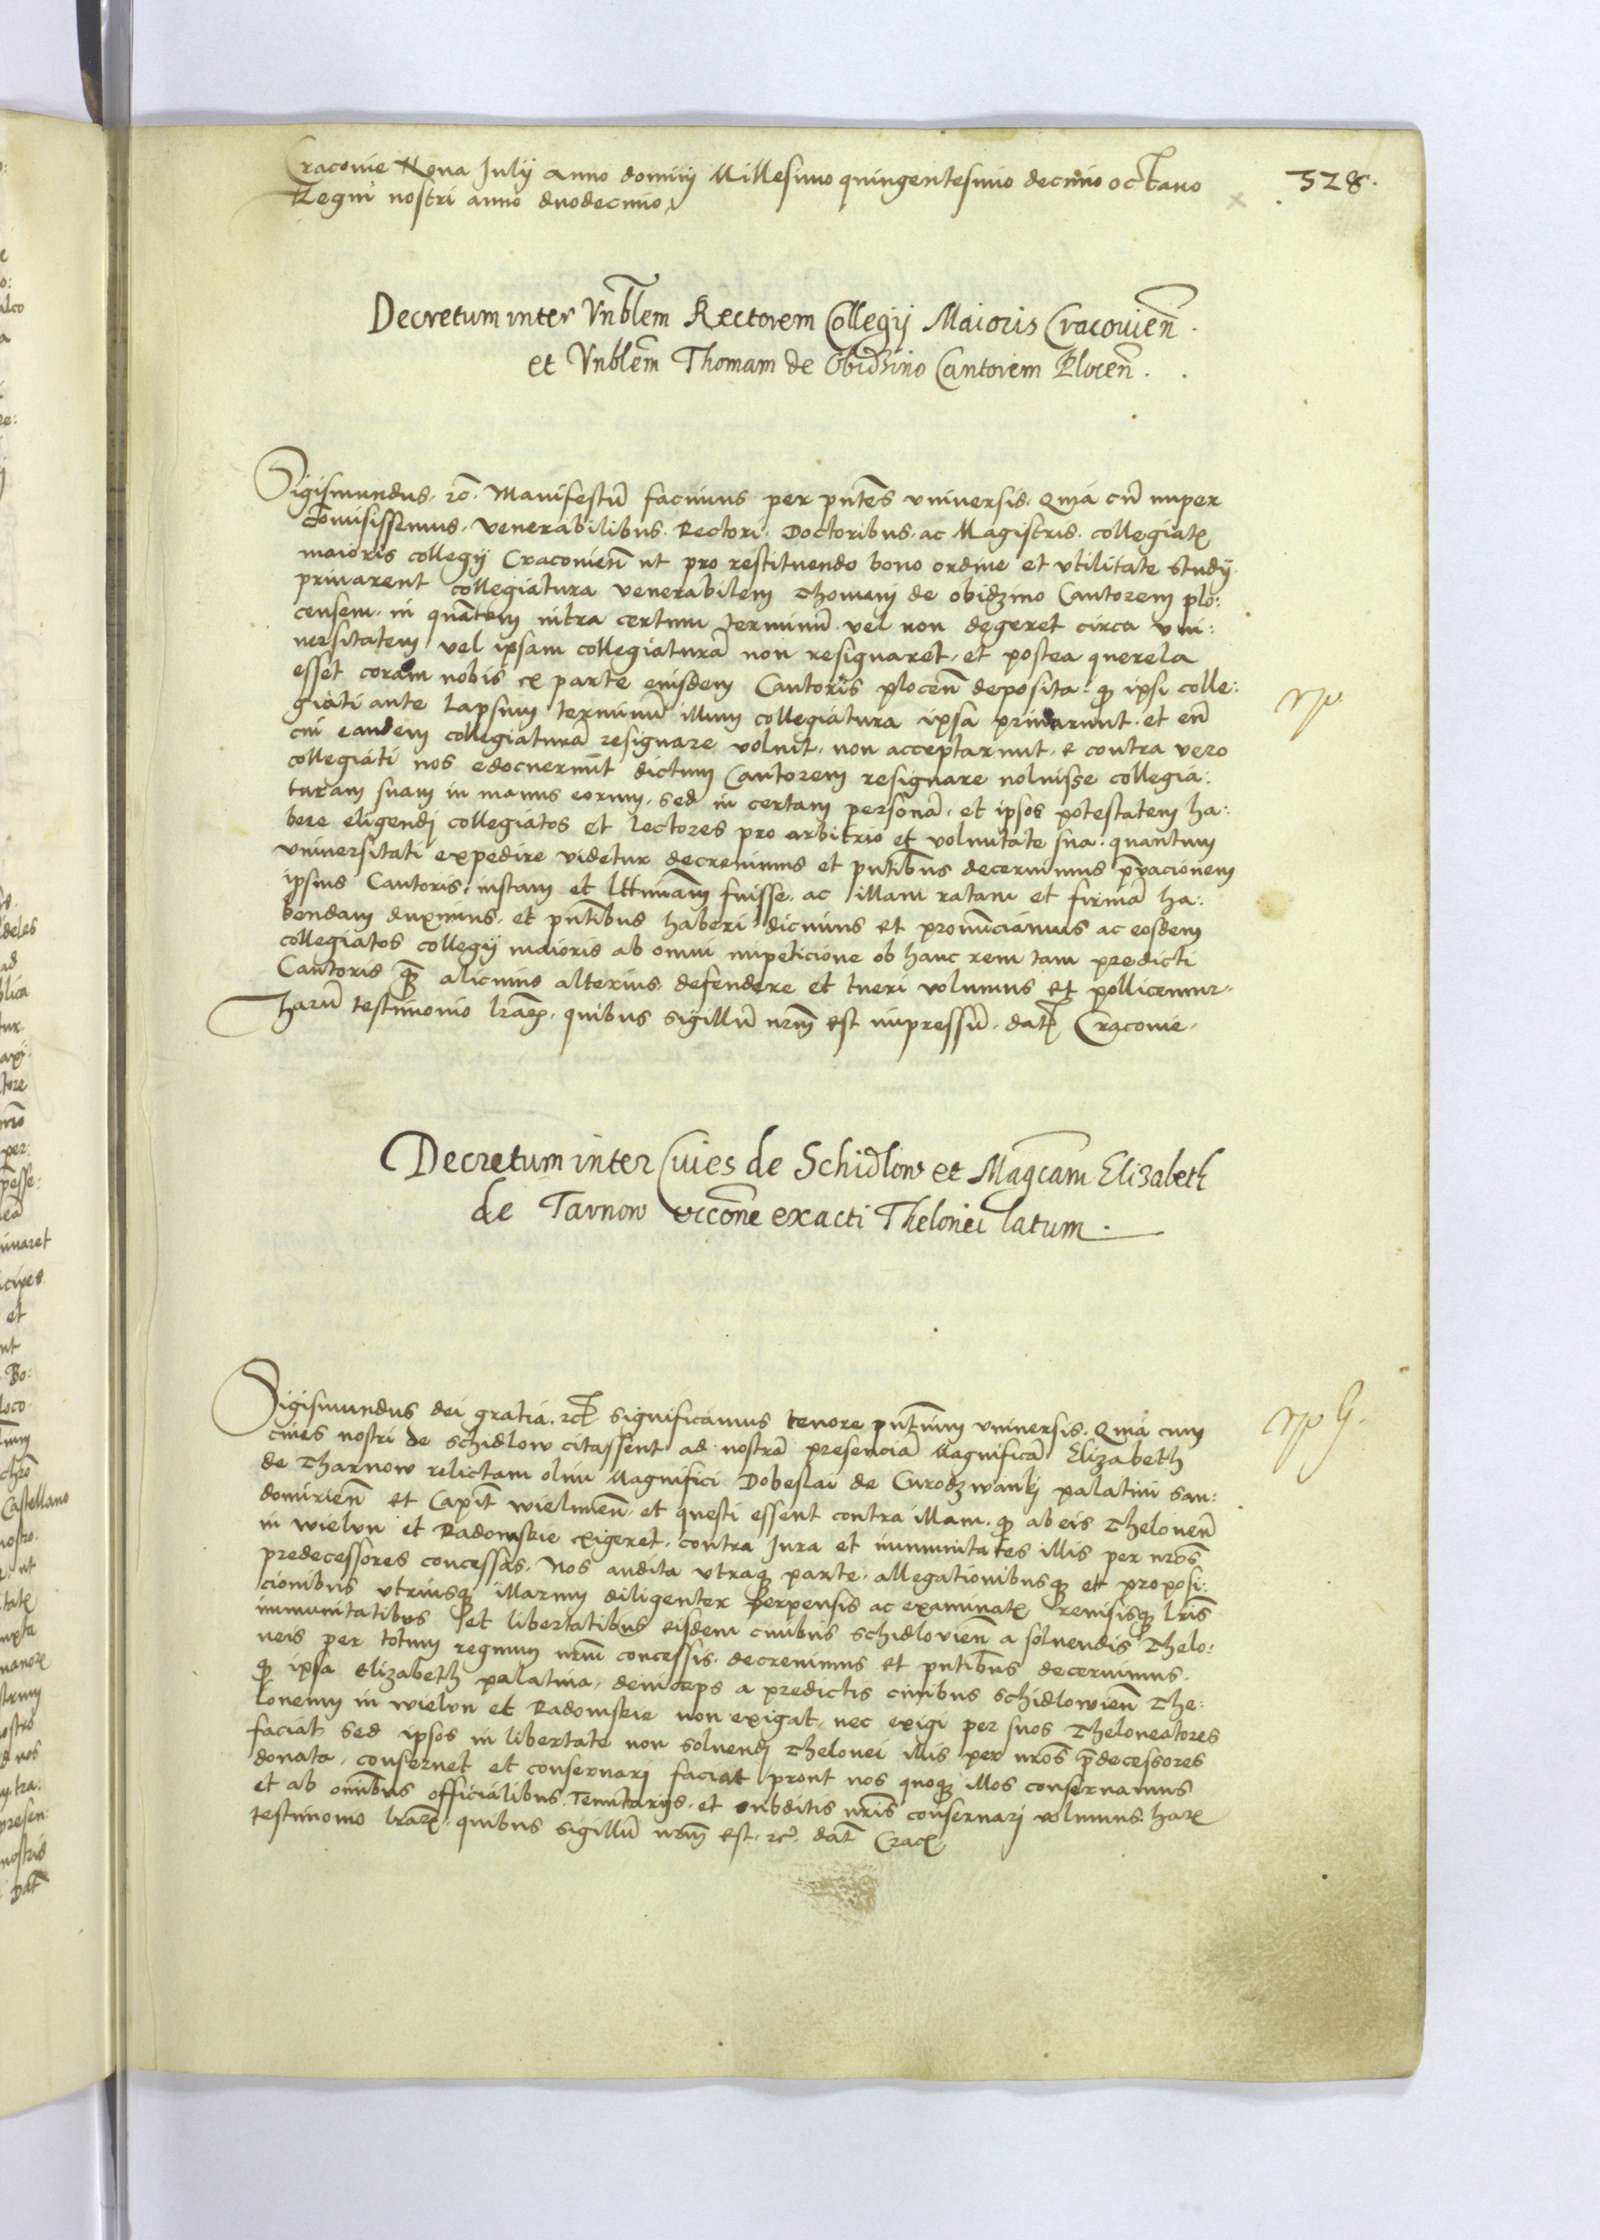 Cracovie Nona Julij anno domini Millesimo quingentesimo decimo octavo
Regni nostri anno duodecimo
328.
Decretum inter Vnblem Rectorem Collegij Maioris Cracovien̄.
et Vnblem Thomam de Obidzino Cantorem Plocen̄.
Sigismundus. rc̄. Manifestū facimus per pn̄tes vniversis. Quia cū nuper
cōmisissemus. venerabilibus. Rectori. Doctoribus. ac Magistris. collegiatę
maioris collegij Cracovien̄ ut pro restituendo bono ordine et vtilitate studij
privarent collegiatura venerabilem Thomam de obidzino Cantorem plo:
censem. in quātum intra certum terminū vel non degeret circa vni:
versitatem vel ipsam collegiaturā non resignaret. et postea querela
esset coram nobis ex parte eiusdem Cantoris plocen̄ deposita. qp ipsi colle:
giati ante lapsum terminū illum collegiatura ipsa privarunt. et en̄
cui eandem collegiaturā resignare voluit. non acceptarunt. e contra vero
collegiati nos edocuerunt dictum Cantorem resignare noluisse collegia:
turam suam in manus eorum. sed in certam personā. et ipsos potestatem ha:
bere eligendj collegiatos et lectores pro arbitrio et voluntate sua. quantum
vniversitati expedire videtur decrevimus et pn̄tibus decernimus p̄vacionem
ipsius Cantoris. iustam et lttimam fuisse. ac illam ratam et firmā ha:
bendam duximus. et pn̄tibus haberi dicimus et pronūciamus ac eosdem
collegiatos collegij maioris ab omni impeticione ob hanc rem tam predicti
Cantoris q̄ alicuius alterius. defendere et tueri volumus et pollicemur.
Harū testimonio lrāRę. quibus sigillū nrm̄ est impressū. datę Cracovie.
Decretum inter Cives de Schidlow et Magcam Elizabeth
de Tarnow rcōne exacti Thelonei latum.
Sigismundus dei gratia. rct̄ significamus tenore pn̄tium vniversis. Quia cum
cives nostri de schidlow citassent ad nostrā presenciā Magnificā Elizabeth
de Tharnow relictam olim Magnifici Dobeslai de Curodzwankj palatini san:
domirien̄ et Capit̄ wielunen̄ et questi essent contra illam. qp ab eis Thelonen̄
in wielun et Radomskie exigeret. contra Jura et immunitates illis per nrōs
predecessores concessas. Nos audita utraqp parte. allegationibusqp et proposi:
cionibus vtriusqp illarum diligenter perpensis ac examinatę revisisqp lrīs
immunitatibus et libertatibus eisdem civibus schidlovien̄ a solvendis Thelo:
neis per totum regnum nrm̄ concessis. decrevimus et pn̄tibus decernimus.
qp ipsa Elizabeth palatina. deinceps a predictis civibus schidlowien̄ The:
loneum in wielun et Radomskie non exigat. nec exigi per suos Theloneatores
faciat. sed ipsos in libertate non solvendj Thelonei illis per nrōs p̄decessores
donata. conservet et conservarj faciat prout nos quoqp illos conservamus
et ab om̄ibus officialibus. Tenutarijs. et subditis nrīs conservarj volumus. harę
testimonio lrāRę. quibus sigillū nrm̄ est. rc̄. dat̄ Cracę.